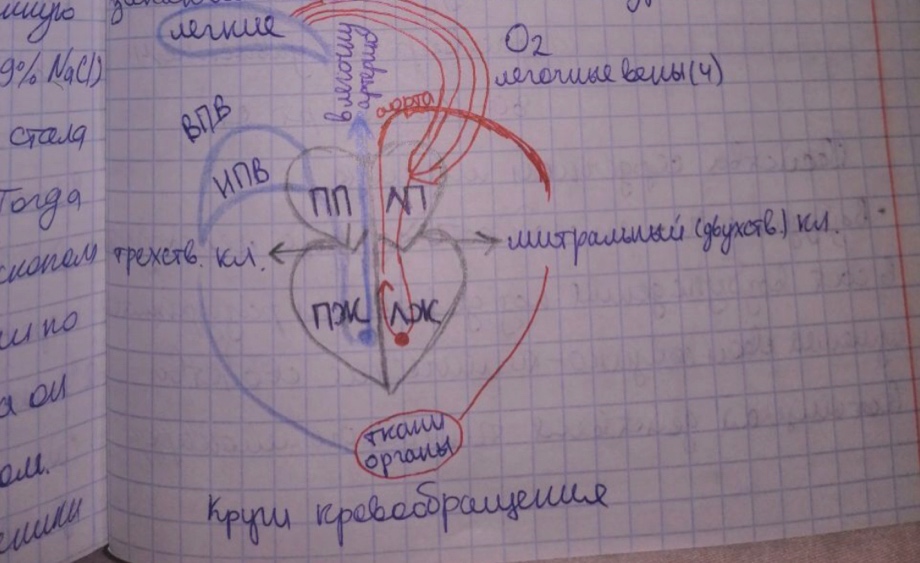 9% NaCl)
стала
Тогда
легкие
в легочную
артерию
O2
легочные вены (4)
аорта
ВПВ
НПВ
ПП
ЛП
трехств. кл.
митральный (двухств.) кл.
ПЖ
ЛЖ
ткани
органы
Круги кровообращения